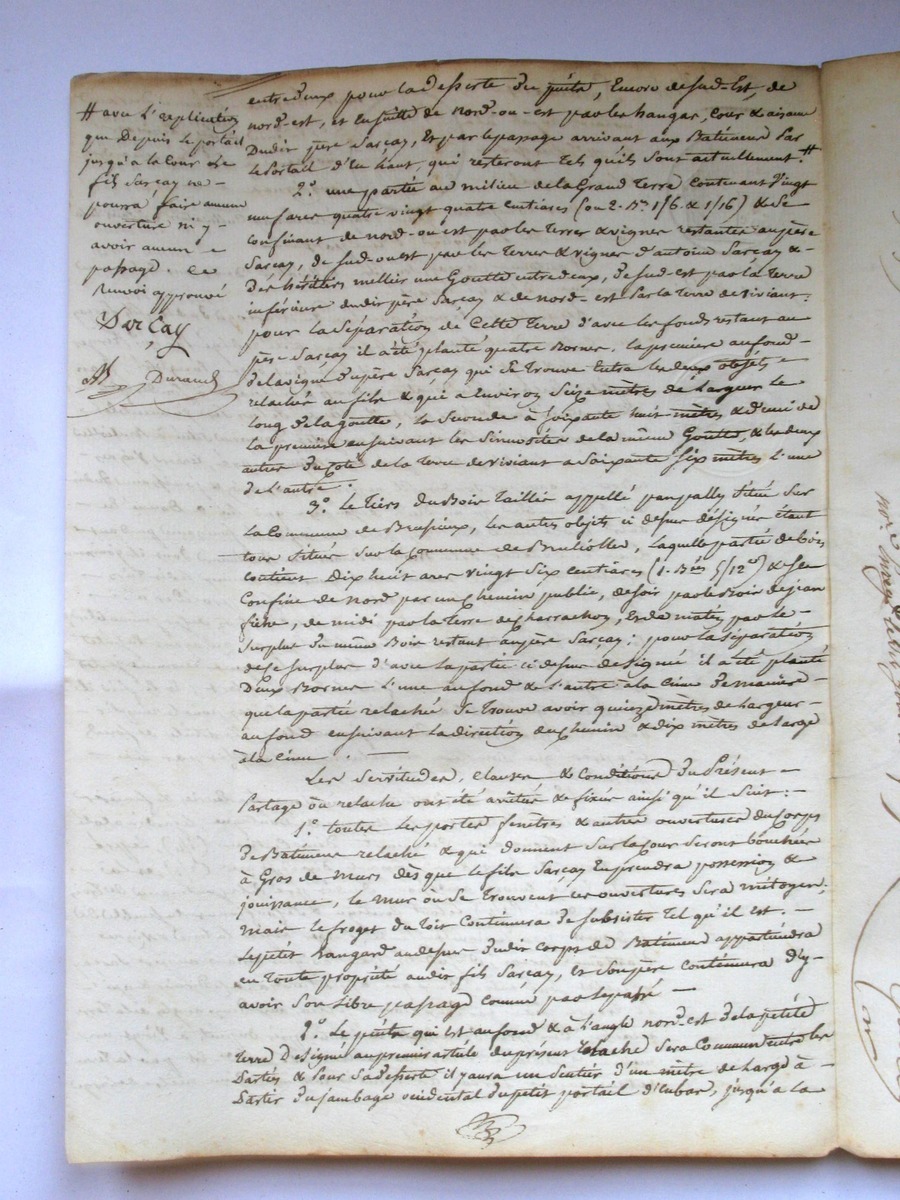 # avec l'explication
que Depuis le portail
jusqu'a la Cour Le
fils Sarçay ne
pourra faire aucune
ouverture ni y
avoir aucun
passage. ce
Renvoi approuvé
Sarçay
Durand
entredeux pour la Desserte du puits, Encore de sud-Est, de
nord-est, et Ensuite de nord-ou-est par les hangar, Cour & aisance
Dudit père Sarçay, Et par le passage arrivant aux Batiments par
le Portail d'En haut, qui resteront tels qu'ils sont actuellement. #
2.° une partie au milieu de la Grand Terre contenant Vingt
un ares quatre vingt quatre Centiares (ou 2. B.es 1/6. & 1/16) & se
Confinant de nord-ou-est par les Terres & vignes restantes au père
Sarçay, de sud-ouest par les Terres & vignes d'antoine Sarçay &
Des héritiers mellier une Goutte entredeux, de sud-est par la Terre
inférieure dudit père Sarçay & de nord-est par la Terre de Viviant.
pour la Séparation de Cette Terre d'avec les fonds restant au
père Sarçay il a été planté quatre Bornes, la première au fond
de la vigne du père Sarçay qui se Trouve Entre les deux objets
relachés au fils & qui a Environ Seize mètres de Largeur le
long de la goutte, la Seconde à Soixante huit mètres & demi de
la première en suivant les Sinuosités de la même Goutte, & les deux
autres du Coté de la Terre de Viviant a Soixante Six mètres l'une
de l'autre.
3.° Le Tiers du Bois Taillis appellé panpally Situé Sur
la Commune de Brussieux, les autres objets ci dessus désignés étant
tous Situés Sur la Commune de Brullioles, Laquelle partie de bois
Contient Dix huit ares vingt Six Centiares (1. B.es 5/12.es) & se
Confine de Nord par un Chemin public, de soir par le Bois de jean
fière, de midi par la Terre de Charrachon, Et de matin par le
Surplus du même Bois restant au père Sarçay: pour la Séparation
de ce Surplus d'avec la partie ci dessus designée il a été planté
Deux Bornes l'une au fond & l'autre à la Cime De manière
que la partie relachée Se Trouve avoir quinze mètres de Largeur
au fond en suivant la direction du Chemin & dix mètres de Large
à la Cime.
Les Servitudes, Clauses & Conditions Du Présent
Partage ou relache ont été arrêtées & fixées ainsi qu'il Suit:
1.° toutes les portes fenêtres & autres ouvertures du Corps
De Batiment relaché & qui donnent Sur la Cour Seront bouchées
à Gros de murs dès que le fils Sarçay En prendra possession &
jouissance, le mur où Se Trouvent ces ouvertures Sera mitoyen,
mais le forget du Toit Continuera de Subsister Tel qu'il est.
Le petit hangard au dessus dudit Corps de Batiment appartiendra
en Toute propriété audit fils Sarçay, Et Son père Continuera d'y
avoir Son Libre passage comme par le passé
2.° Le puits qui est au fond & à l'angle nord-est De la petite
Terre Designée au premier article du présent relaché Sera Commun entre les
Parties & Pour Sa desserte il y aura un Sentier d'un mètre de Large à
Partir du jambage occidental du petit portail d'Enbas, jusqu'à la